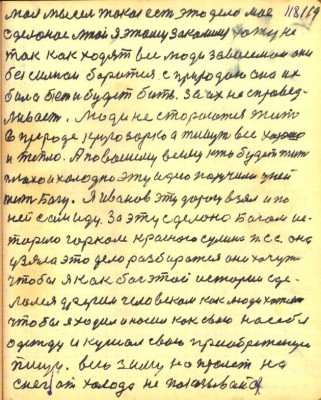 моя мысель такая есть это дело мое 118/69
сделоное мной я этому закалины хожу не
так как ходят все люди зависемам они
без силнои борится с природои она их
била бет и будет бить. За их не справед-
ливасть. Люди не сторшатся жить
в природе кругозорка а пишут все хорошо
и тепло. А поваешиму всему кто будет жить
плохо и холодно эту идею получили у неи
жить Богу. Я Иванов эту дорогу взял и по
ней сам иду. За эту сделоно Богом ис-
торию горком красного сулина ж с с она
узяла это дело разбиратся они хотят
чтобы я как бог этои истории сде-
лался другим человеком как люди хотят
чтобы я ходил и носил как свою на себе
одежду и кушал свою приобретеную
пищу. всю зиму на пролет на
снегу от холода не показывайся